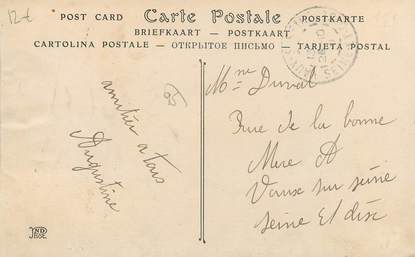 12€
POST CARD Carte Postale POSTKARTE
BRIEFKAART — POSTKAART
CARTOLINA POSTALE — ОТКРЫТОЕ ПИСЬМО — TARJETA POSTAL
amitier a tous
Augustine
Mme Duval
Rue de la bonne
Mere A
Vaux sur seine
seine Et dise
ND
PHOT.